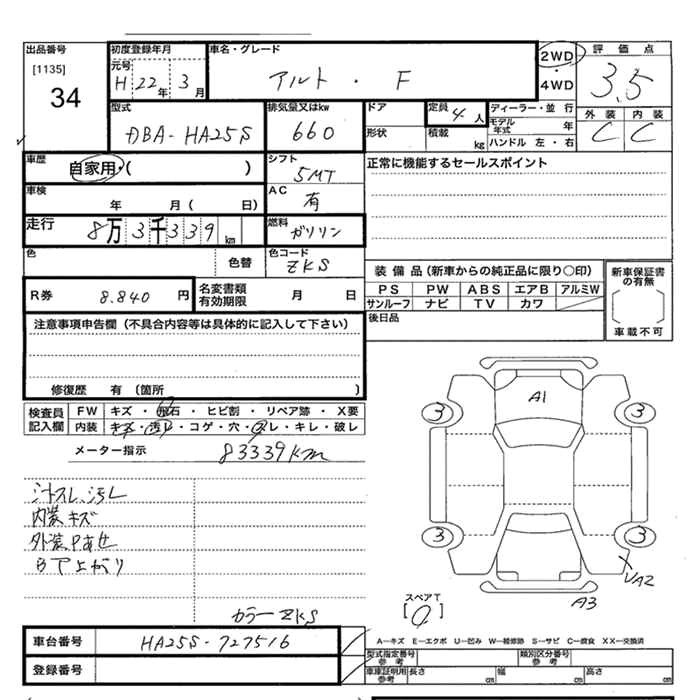 出品番号
[1135]
34
初度登録年月
元号
H 22年 3月
車名・グレード
アルト・F
2WD
・
4WD
評価点
3.5
型式
DBA-HA25S
排気量又はkw
660
ドア
形状
定員
4人
積載
kg
ディーラー・並行
モデル年式 年
ハンドル 左・右
外装 内装
C C
車歴
自家用・( )
シフト
5MT
正常に機能するセールスポイント
車検
年 月( 日)
AC
有
走行
8万3千339km
燃料
ガソリン
色
色替
色コード
ZKS
装備品(新車からの純正品に限り○印)
PS PW ABS エアB アルミW
サンルーフ ナビ TV カワ
新車保証書の有無
車載不可
R券
8.840円
名変書類
有効期限
月 日
後日品
注意事項申告欄(不具合内容等は具体的に記入して下さい)
修復歴 有 (箇所 )
検査員
記入欄
FW キズ・飛石・ヒビ割・リペア跡・X要
内装 キズ・汚レ・コゲ・穴・スレ・キレ・破レ
メーター指示
83339km
内装キズ
外装Pあせ
A1
3 3
3 3
XA2
A3
スペアT
カラーZKS
車台番号
HA25S-727516
登録番号
A―キズ E―エクボ U―凹み W―補修跡 S―サビ C―腐食 XX―交換済
型式指定番号
参考
類別区分番号
参考
車庫証明用
参考
長さ cm
幅 cm
高さ cm